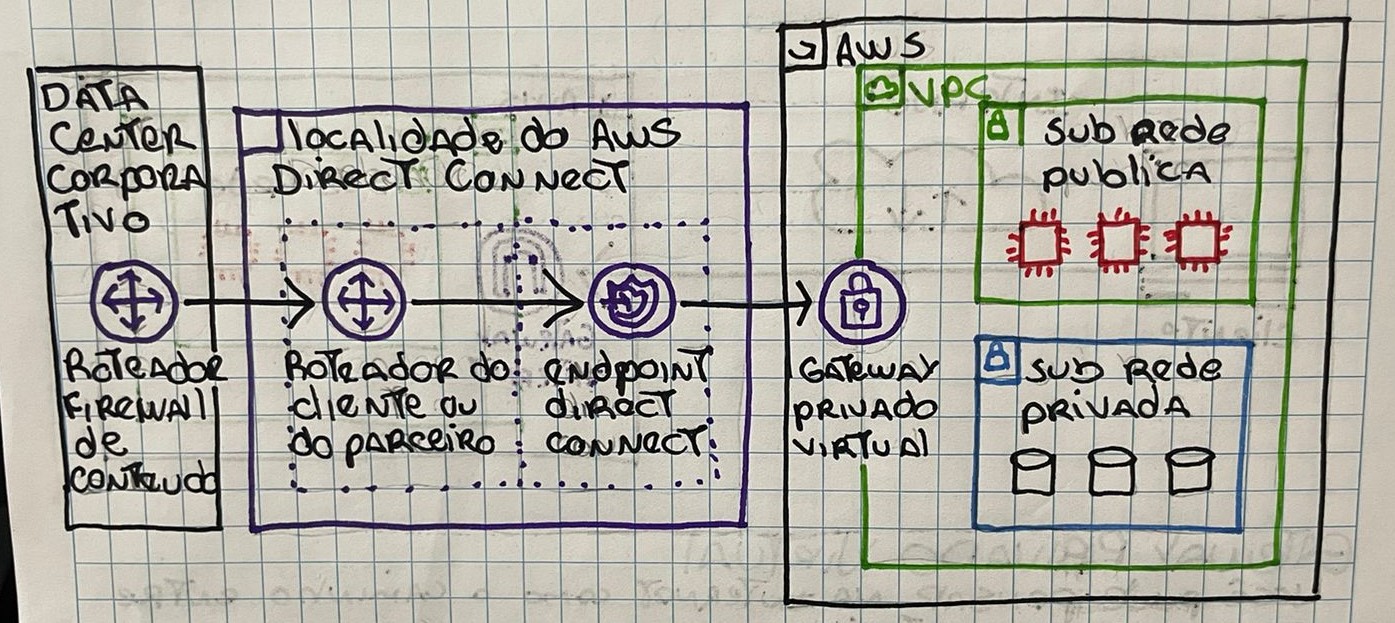 DATA
CENTER
CORPORA
TIVO
ROTEADOR
FIREWALL
de
CONTEUDO
localidade do AWS
DIRECT CONNECT
ROTEADOR do
cliente ou
do parceiro
endpoint
direct
connect
AWS
VPC
GATEWAY
PRIVADO
VIRTUAL
sub rede
publica
sub rede
privada